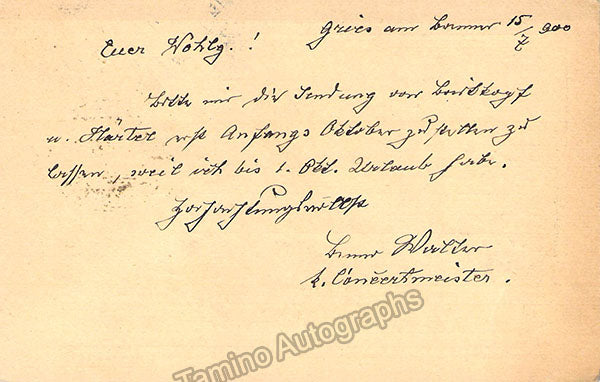 Gries am Brenner 15/7 900
Euer Wohlg.!
Bitte mir die Sendung von Breitkopf
u. Härtel erst Anfangs Oktober zustellen zu
lassen, weil ich bis 1. Okt. Urlaub habe.
Hochachtungsvollst
Benno Walter
k. Concertmeister.
Tamino Autographs